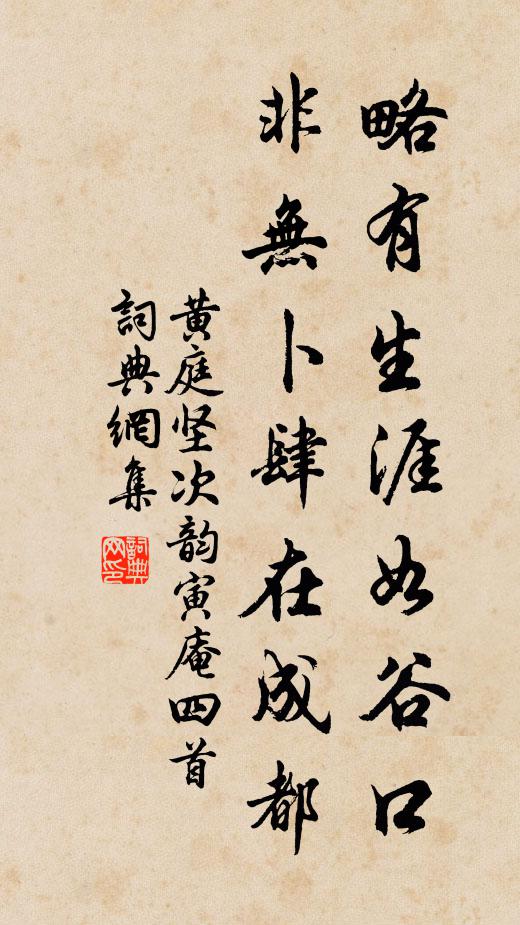 略有生涯如谷口
非無卜肆在成都
黄庭坚次韵寅庵四首
詞典網集
詞典网印